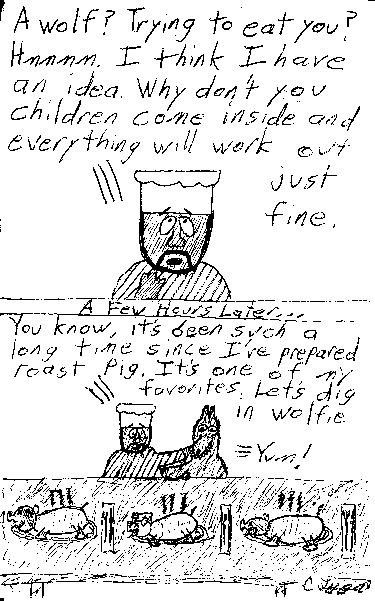 A wolf? Trying to eat you?
Hmmmm. I think I have
an idea. Why don't you
children come inside and
everything will work out
just
fine.
A Few Hours Later...
You know, it's been such a
long time since I've prepared
roast pig. It's one of my
favorites. Let's dig
in wolfie
Yum!